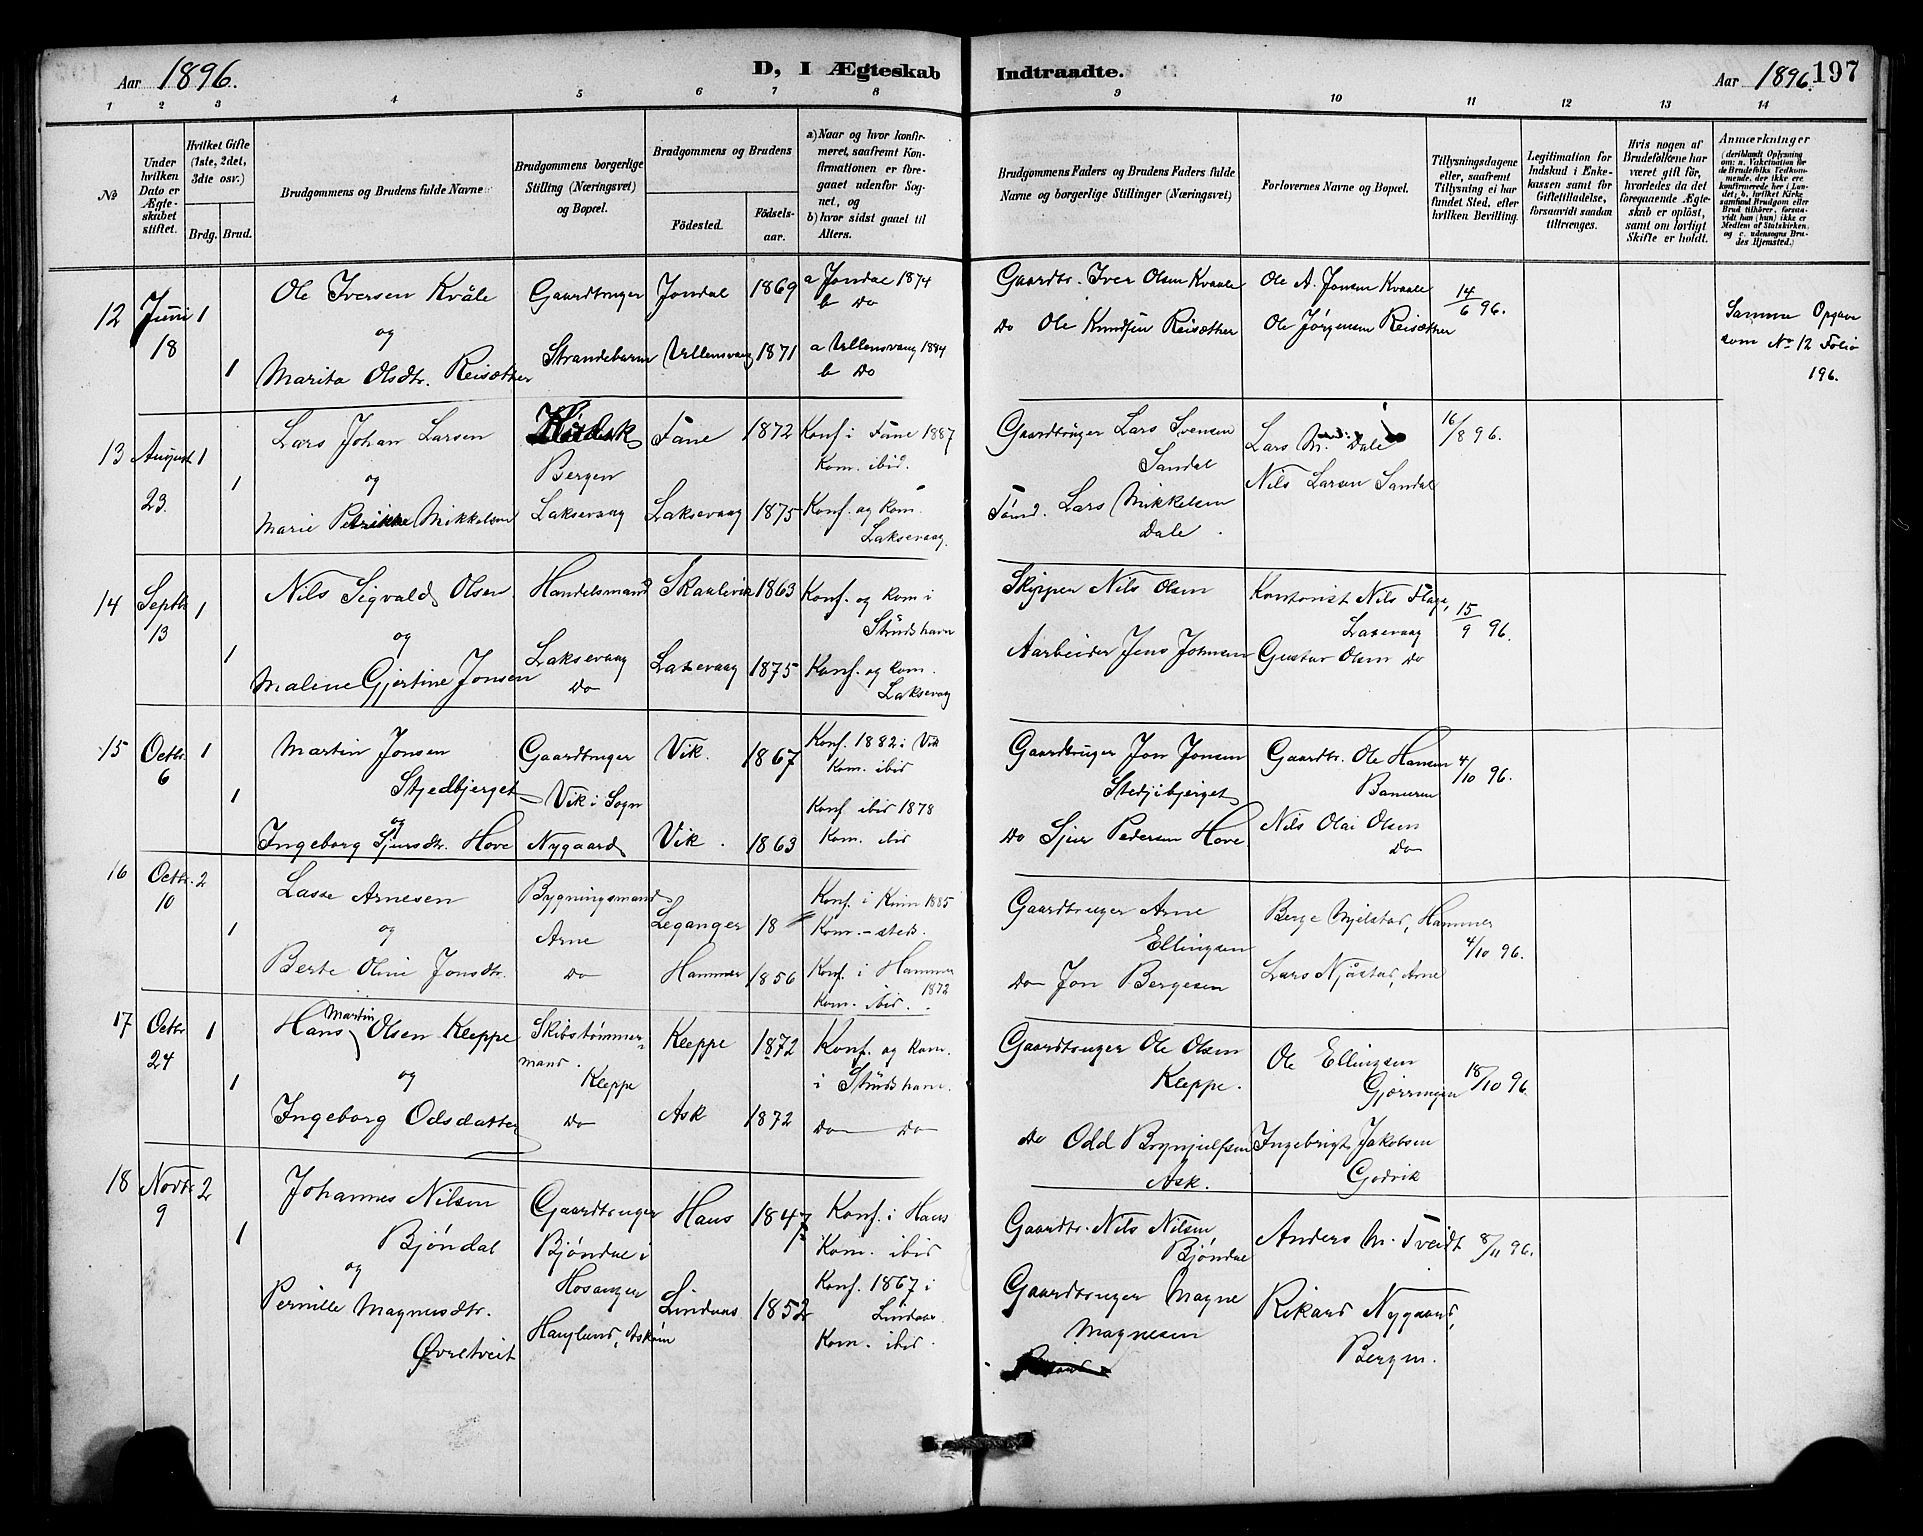 Aar 1896. D, I Ægteskab Indtraadte. Aar 1896. 197
1 2 3 4 5 6 7 8 9 10 11 12 13 14
No
Under hvilken Dato er Ægteskabet stiftet.
Hvilket Gifte (1ste, 2det, 3die osv.)
Brdg. Brud.
Brudgommens og Brudens fulde Navne
Brudgommens borgerlige Stilling (Næringsvei) og Bopæl.
Brudgommens og Brudens
Födested. Födselsaar.
a) Naar og hvor konfirmeret, saafremt Konfirmationen er foregaaet udenfor Sognet, og
b) hvor sidst gaaet til Alters.
Brudgommens Faders og Brudens Faders fulde Navne og borgerlige Stillinger (Næringsvei)
Forlovernes Navne og Bopæl.
Tillysningsdagene eller, saafremt Tillysning ei har fundet Sted, efter hvilken Bevilling.
Legitimation for Indskud i Enkekassen samt for Giftetilladelse, forsaavidt saadan tiltrænges.
Hvis nogen af Brudefolkene har været gift før, hvorledes da det foregaaende Ægteskab er opløst, samt om lovligt Skifte er holdt.
Anmærkninger
(deriblandt Oplysning om: a. Vakcination for de Brudefolks Vedkommende, der ikke ere konfirmerede her i Landet; b. hvilket Kirkesamfund Brudgom eller Brud tilhører, forsaavidt han (hun) ikke er Medlem af Statskirken, og c. udensogns Brudes Hjemsted.)
12 Juni 18 1 1
Ole Iversen Kvåle
og
Marita Olsdtr. Reisæther
Gaardbruger
Strandebarm
Jondal 1869
Ullensvang 1871
a Jondal 1874
b Do
a Ullensvang 1884
b Do
Gaardbr. Iver Olsen Kvaale
Do Ole Knudsen Reisæther
Ole A. Jonsen Kvaale
Ole Jørgensen Reisæther
14/6 96.
Samme Opgave
som No 12 Folio
196.
13 August 23. 1 1
Lars Johan Larsen
og
Marie Petrikke Mikkelsen
Bergen
Laksevaag
Fane 1872
Laksevaag 1875
Konf. i Fane 1887
Kom. ibid.
Konf. og Kom.
Laksevaag.
Gaardbruger Lars Svensen
Sandal
Tømd. Lars Mikkelsen
Dale.
Lars M. Dale
Nils Larsen Sandal
16/8 96.
14 Septbr 13 1 1
Nils Sigvald Olsen
og
Maline Gjertine Jonsen
Handelsmand
Laksevaag
Do
Skaalevik 1863
Laxevaag 1875
Konf. og Kom i
Strudshavn
Konf. og Kom.
Laksevaag
Skipper Nils Olsen
Aarbeider Jens Johnsen
Kontorist Nils Flage,
Laxevaag
Gustav Olsen do
15/9 96.
15 Octbr. 6 1 1
Martin Jonsen
Stjedbjerget
og
Ingeborg Sjursdtr. Hove
Gaardbruger
Vik i Sogn
Nygaard
Vik. 1867
Vik. 1863
Konf. 1882 i Vik
Kom. ibid
Konf ibid 1878
Kom. ibid
Gaardbruger Jon Jonsen
Stedjibjerget
Do Sjur Pedersen Hove
Gaardbr. Ole Hansen
Nils Olai Olsen
do
4/10 96.
16 Octbr. 10 2 1
Lasse Arnesen
og
Berte Oline Jonsdtr.
Bygningsmand
Arne
do
Leganger 18
Hammer 1856
Konf. i Kinn 1885
Kom. - steds.
Konf. i Hammer 1872
Kom. ibid.
Gaardbruger Arne
Ellingsen
Do Jon Bergesen
Berge Mjelstad, Hammer
Lars Njåstad, Arne
4/10 96.
17 Octbr 24 1 1
Hans Martin Olsen Kleppe
og
Ingeborg Odsdatter
Skibstømmermand.
Kleppe
do
Kleppe 1872
Ask 1872
Konf. og Kom.
i Strudshavn.
do do
Gaardbruger Ole Olsen
Kleppe.
Do Odd Brynjulfsen
Ask.
Ole Ellingsen
Ingebrigt Jakobsen
Godvik
18/10 96.
18 Novbr 9 2 1
Johannes Nilsen
Bjøndal
og
Pernille Magnusdtr.
Øvretveit
Gaardbruger
Bjøndal i
Hosanger
Haugland, Askøen
Haus 1847
Lindaas 1852
Konf. i Haus
Kom. ibid
Konf. 1867 i
Lindaas
Kom. ibid.
Gaardbr. Nils Nilsen
Bjøndal
Gaardbruger Magne
Magnesen
Anders M. Tveidt
Rikard Nygaard,
Bergen.
8/11 96.